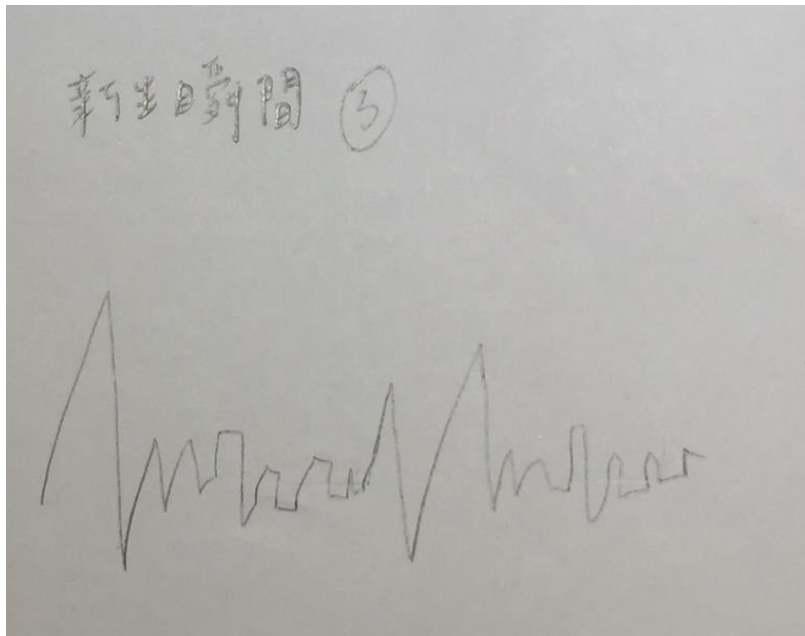 新生日瞬間 ③